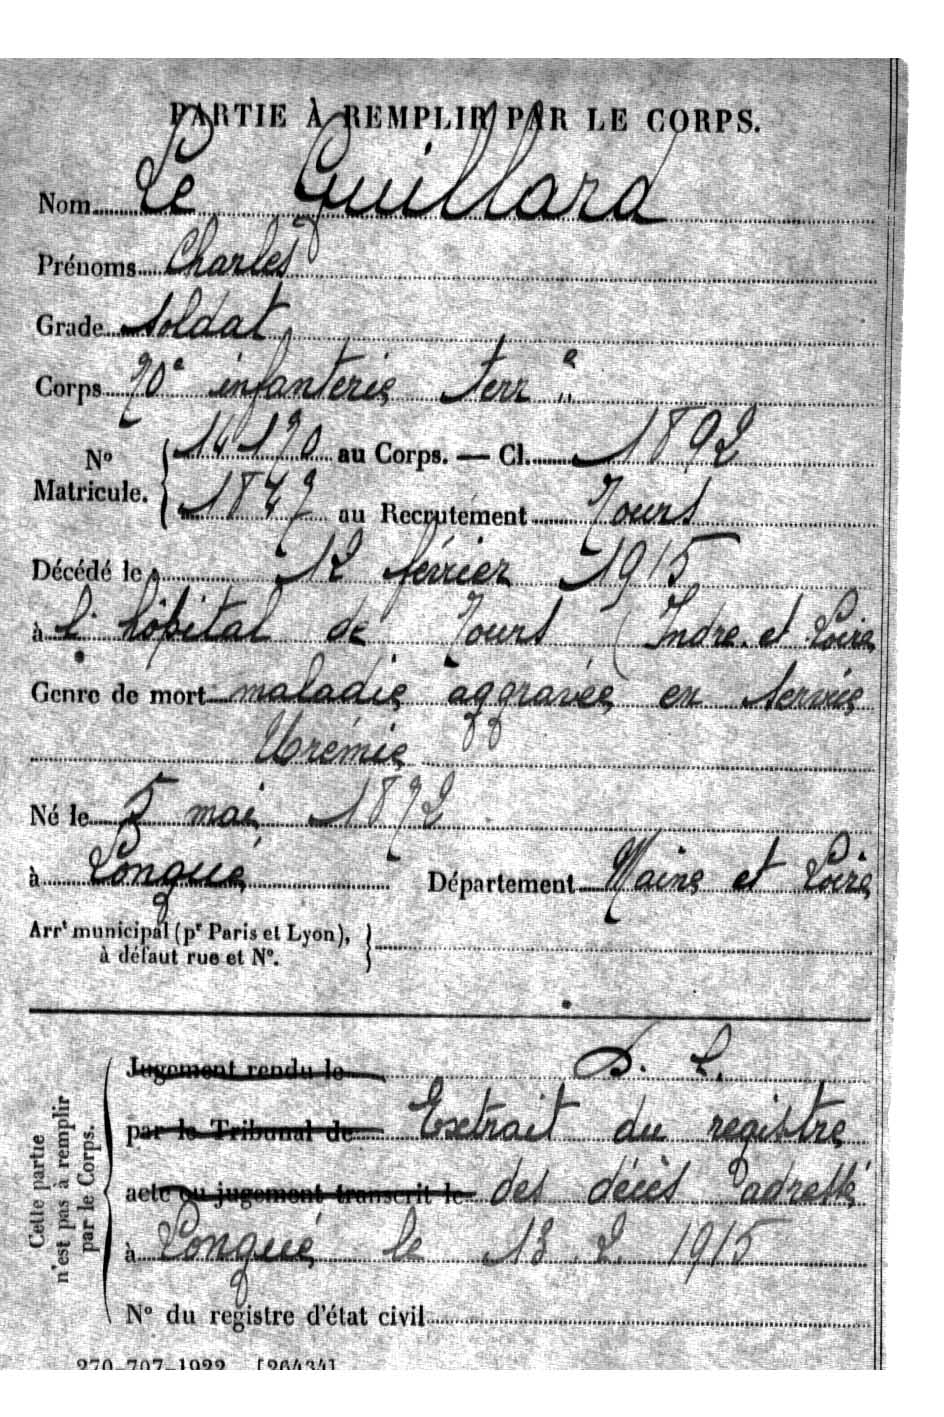 PARTIE À REMPLIR PAR LE CORPS.
Nom Le Guillard
Prénoms Charles
Grade Soldat
Corps 70e infanterie terr le
No Matricule. { 14170 au Corps. — Cl. 1892
1847 au Recrutement Tours
Décédé le 12 février 1915
à l'hôpital de Tours (Indre et Loire
Genre de mort maladie aggravée en service
Urémie
Né le 5 mai 1872
à Longué Département Maine et Loire
Arrt municipal (pr Paris et Lyon),
à défaut rue et No.
Cette partie
n'est pas à remplir
par le Corps.
Jugement rendu le D. L.
par le Tribunal de Extrait du registre
acte ou jugement transcrit le des décès adressé
à Longué le 13. 2. 1915
No du registre d'état civil
270-707-1922. [26434]